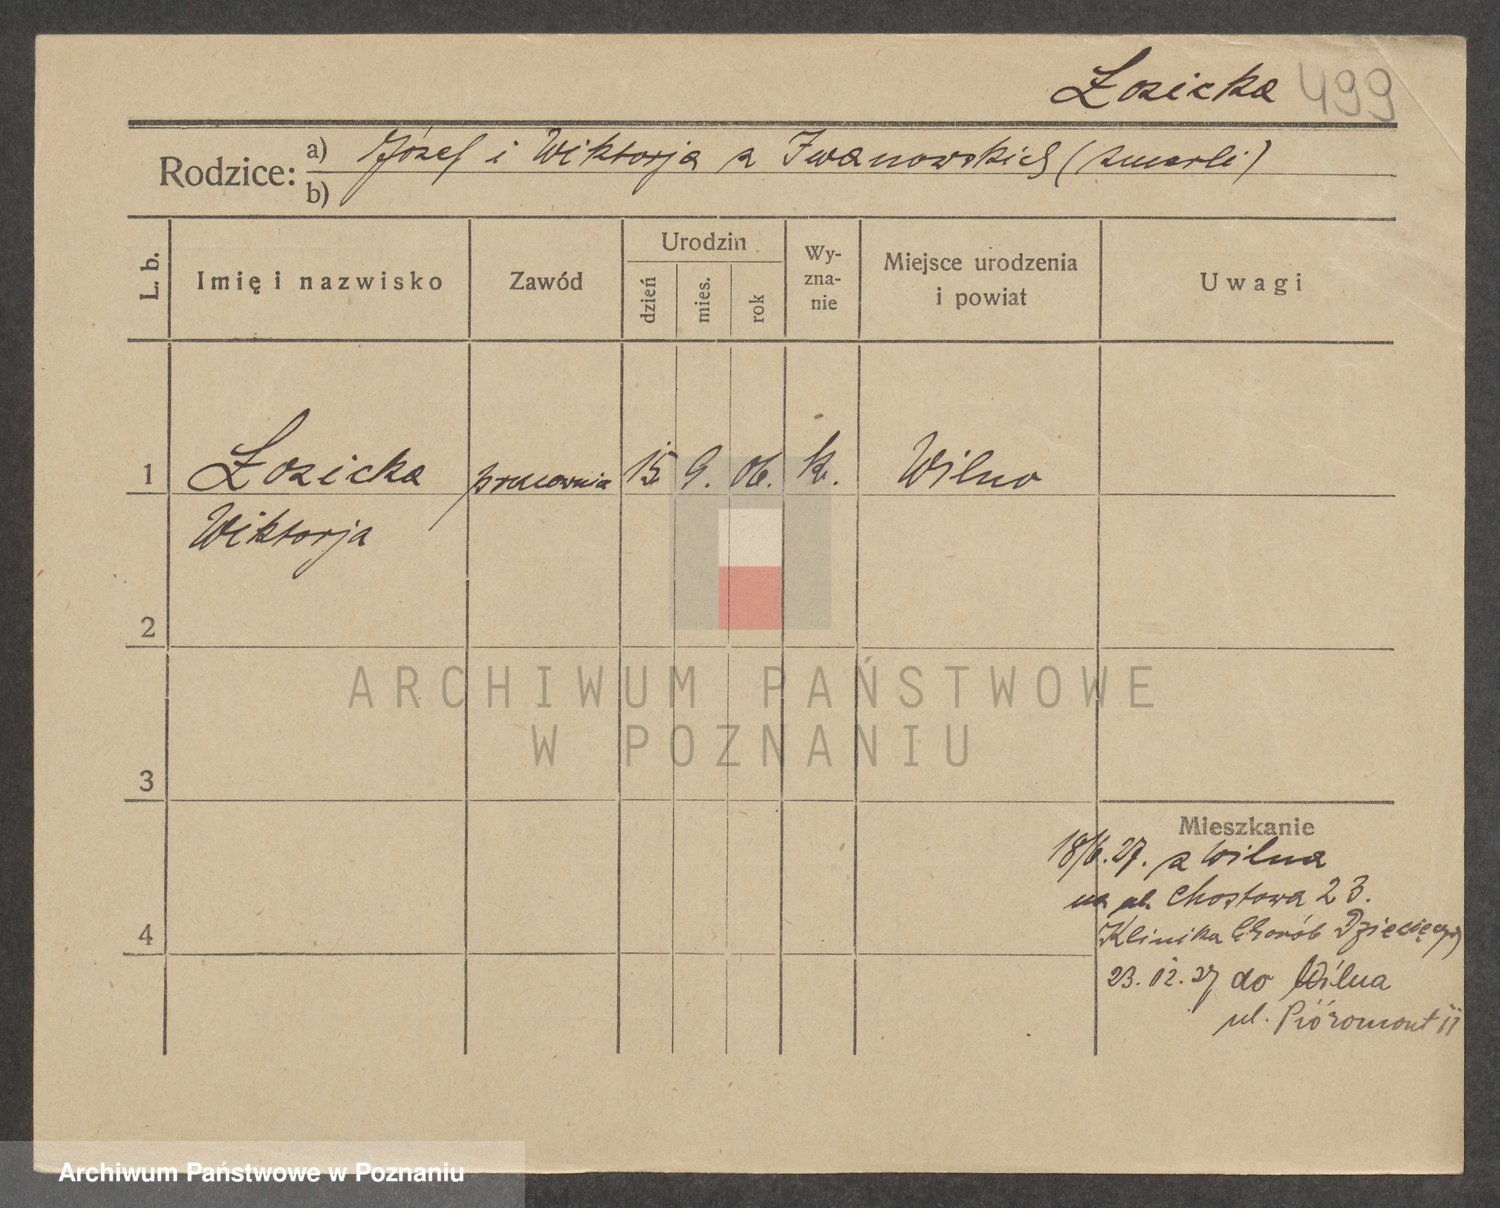 Łozicka 499
Rodzice: a) Józef i Wiktorja z Iwanowskich (zmarli)
b)
L. b.
Imię i nazwisko
Zawód
Urodzin
dzień
mies.
rok
Wy-
zna-
nie
Miejsce urodzenia
i powiat
Uwagi
1 Łozicka pracownia 15. 9. 06. k. Wilno
Wiktorja
2
3
4
ARCHIWUM PAŃSTWOWE
W POZNANIU
Mieszkanie
18/6.27. z Wilna
na pl. Chostowa 23.
Klinika Chorób Dziecięcych
23.12.27 do Wilna
ul. Pióromont 11
Archiwum Państwowe w Poznaniu